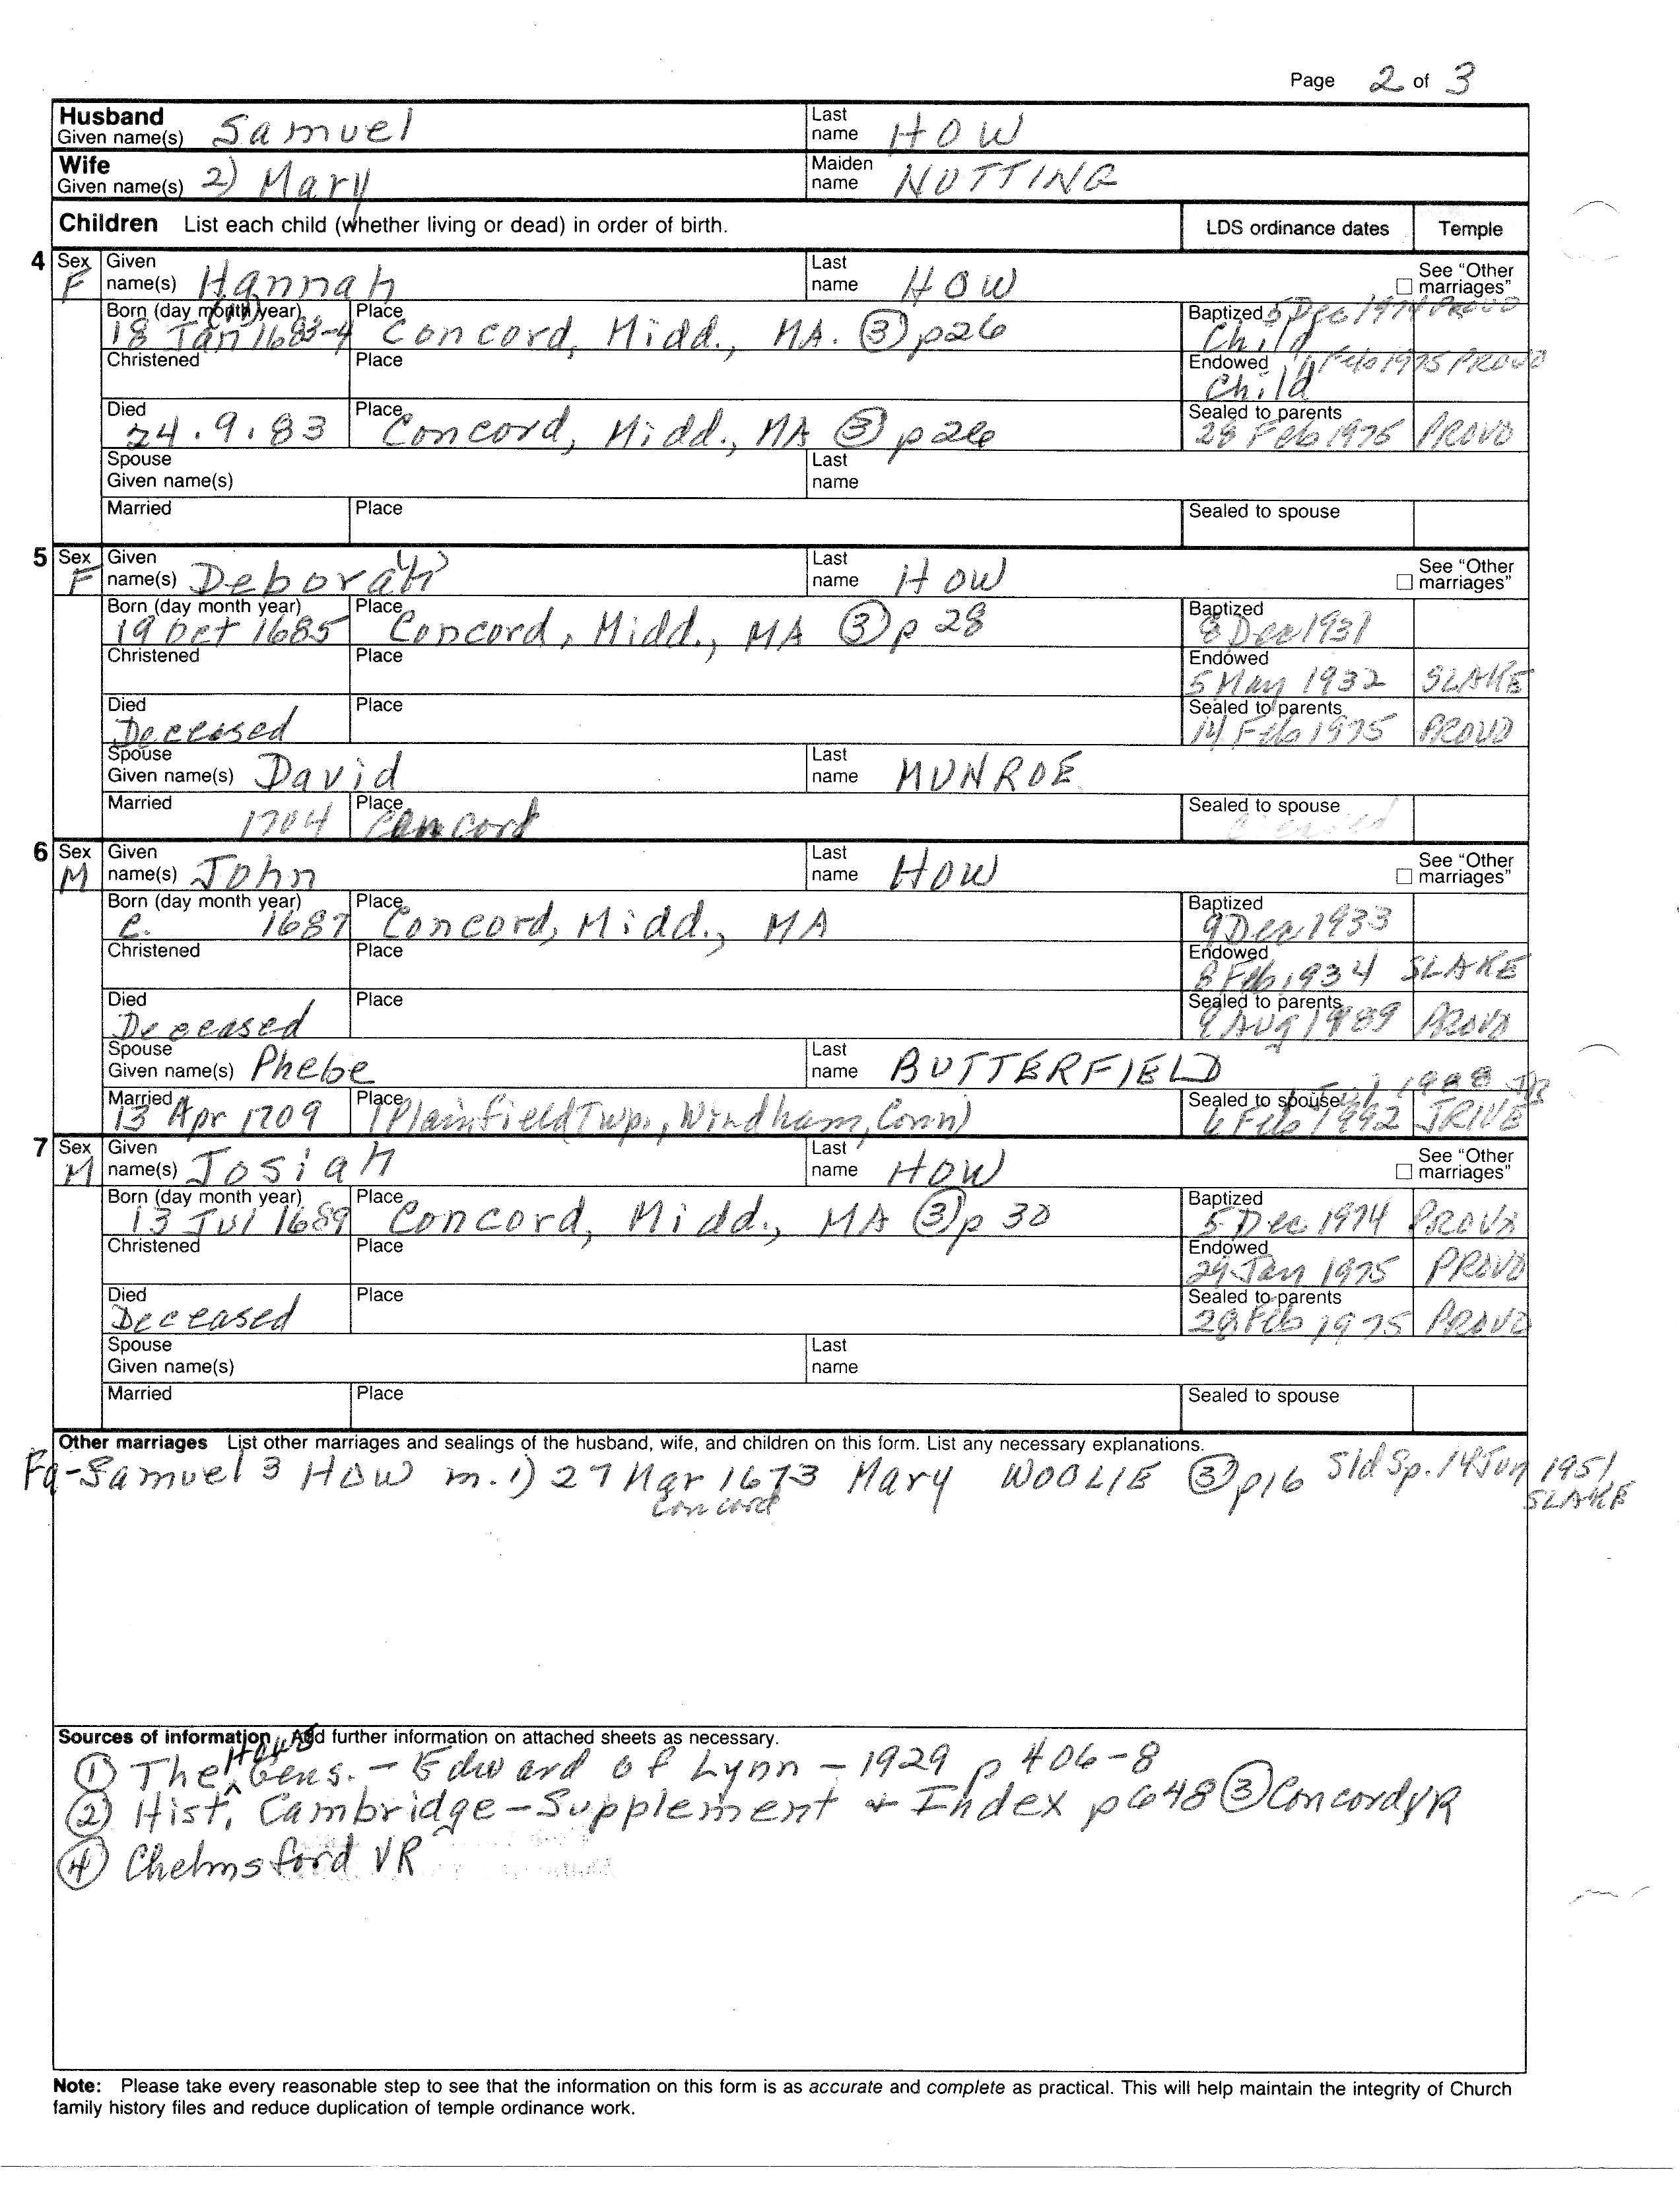 Page 2 of 3
Husband Given name(s) Samuel Last name HOW
Wife Given name(s) 2) Mary Maiden name NUTTING
Children List each child (whether living or dead) in order of birth. LDS ordinance dates Temple
4 Sex F Given name(s) Hannah Last name HOW See "Other marriages"
Born (day month year) 18 Jan 1683-4 (11th) Place Concord, Midd., MA. ③ p26 Baptized 5 Dec 1974 PROVO Child
Christened Place Endowed Feb 1975 PROVO Child
Died 24.9.83 Place Concord, Midd., MA ③ p26 Sealed to parents 28 Feb 1975 PROVO
Spouse Given name(s) Last name
Married Place Sealed to spouse
5 Sex F Given name(s) Deborah Last name HOW See "Other marriages"
Born (day month year) 19 Oct 1685 Place Concord, Midd., MA ③ p 28 Baptized 8 Dec 1931
Christened Place Endowed 5 May 1932 SLAKE
Died Deceased Place Sealed to parents 14 Feb 1975 PROVO
Spouse Given name(s) David Last name MUNROE
Married 1704 Place Concord Sealed to spouse
6 Sex M Given name(s) John Last name HOW See "Other marriages"
Born (day month year) C. 1687 Place Concord, Midd., MA Baptized 9 Dec 1933
Christened Place Endowed 8 Feb 1934 SLAKE
Died Deceased Place Sealed to parents 9 Aug 1989 PROVO
Spouse Given name(s) Phebe Last name BUTTERFIELD
Married 13 Apr 1709 Place (Plainfield Twp., Windham, Conn) Sealed to spouse 6 Feb 1992 JRIVE
7 Sex M Given name(s) Josiah Last name HOW See "Other marriages"
Born (day month year) 13 Jul 1689 Place Concord, Midd., MA ③ p 30 Baptized 5 Dec 1974 PROVO
Christened Place Endowed 29 Jan 1975 PROVO
Died Deceased Place Sealed to parents 28 Feb 1975 PROVO
Spouse Given name(s) Last name
Married Place Sealed to spouse
Other marriages List other marriages and sealings of the husband, wife, and children on this form. List any necessary explanations.
Fa-Samuel 3 HOW m. 1) 27 Mar 1673 Mary WOOLIE ③ p16 Sld Sp. 14 Jun 1951
Concord SLAKE
Sources of information Add further information on attached sheets as necessary.
① The Howe Gens. - Edward of Lynn - 1929 p 406-8
② Hist. Cambridge - Supplement + Index p648 ③ Concord VR
④ Chelmsford VR
Note: Please take every reasonable step to see that the information on this form is as accurate and complete as practical. This will help maintain the integrity of Church
family history files and reduce duplication of temple ordinance work.